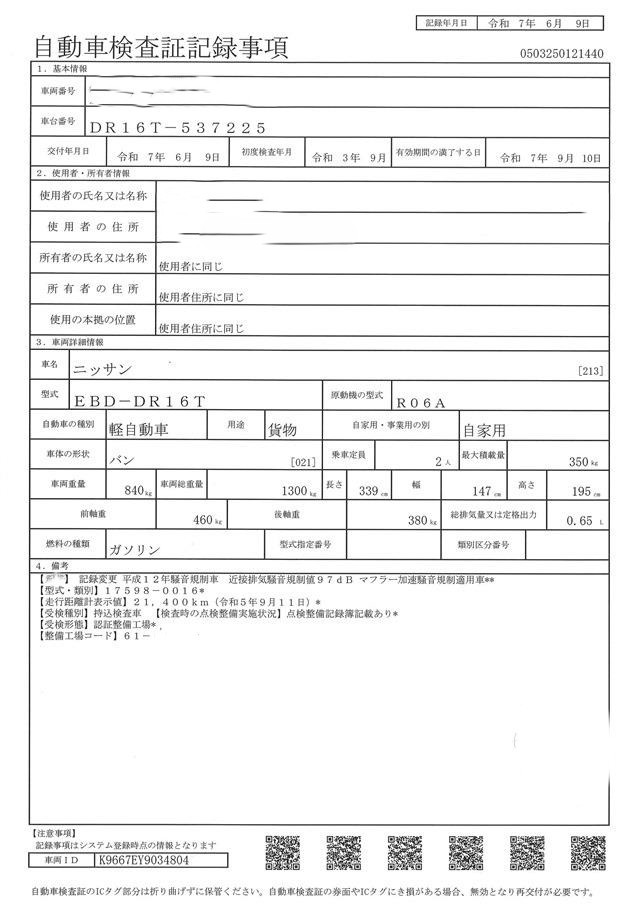 記録年月日 令和 7年 6月 9日
自動車検査証記録事項
0503250121440
1．基本情報
車両番号
車台番号 DR16T－537225
交付年月日 令和 7年 6月 9日 初度検査年月 令和 3年 9月 有効期間の満了する日 令和 7年 9月 10日
2．使用者・所有者情報
使用者の氏名又は名称
使用者の住所
所有者の氏名又は名称 使用者に同じ
所有者の住所 使用者住所に同じ
使用の本拠の位置 使用者住所に同じ
3．車両詳細情報
車名 ニッサン [213]
型式 EBD－DR16T 原動機の型式 R06A
自動車の種別 軽自動車 用途 貨物 自家用・事業用の別 自家用
車体の形状 バン [021] 乗車定員 2人 最大積載量 350kg
車両重量 840kg 車両総重量 1300kg 長さ 339cm 幅 147cm 高さ 195cm
前軸重 460kg 後軸重 380kg 総排気量又は定格出力 0.65 L
燃料の種類 ガソリン 型式指定番号 類別区分番号
4．備考
【 】 記録変更 平成12年騒音規制車 近接排気騒音規制値97dB マフラー加速騒音規制適用車**
【型式・類別】17598－0016*
【走行距離計表示値】21，400km（令和5年9月11日）*
【受検種別】持込検査車 【検査時の点検整備実施状況】点検整備記録簿記載あり*
【受検形態】認証整備工場*
【整備工場コード】61－
【注意事項】
記録事項はシステム登録時点の情報となります
車両ID K9667EY9034804
自動車検査証のICタグ部分は折り曲げずに保管ください。自動車検査証の券面やICタグにき損がある場合、無効となり再交付が必要です。